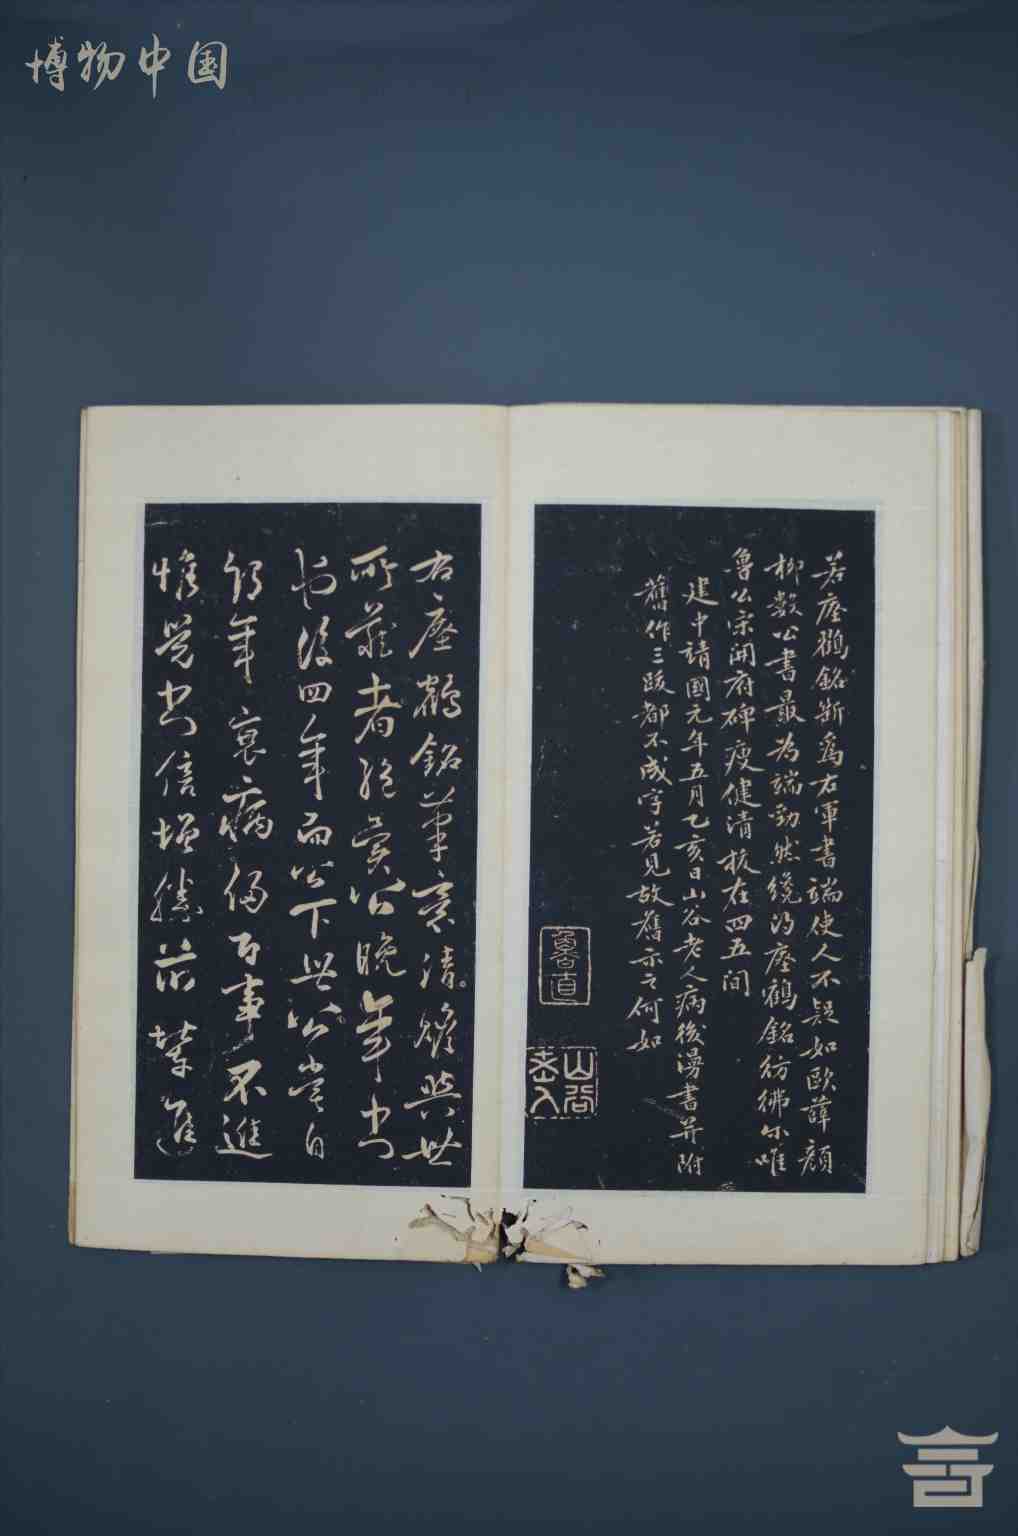 博物中国
若瘞鶴銘斷爲右軍書端使人不疑如歐薛顏
柳數公書最為端勁然纔得瘞鶴銘彷彿尔唯
魯公宋開府碑瘦健清拔在四五間
建中靖國元年五月乙亥日山谷老人病後漫書并附
舊作三跋都不成字若見故舊示之何如
魯直
山谷老人
右瘞鶴銘筆意清與世
所藏者絕異公晚年書
後四年而公下世公嘗自
年衰病侵百事不進
惟覺書倍增勝